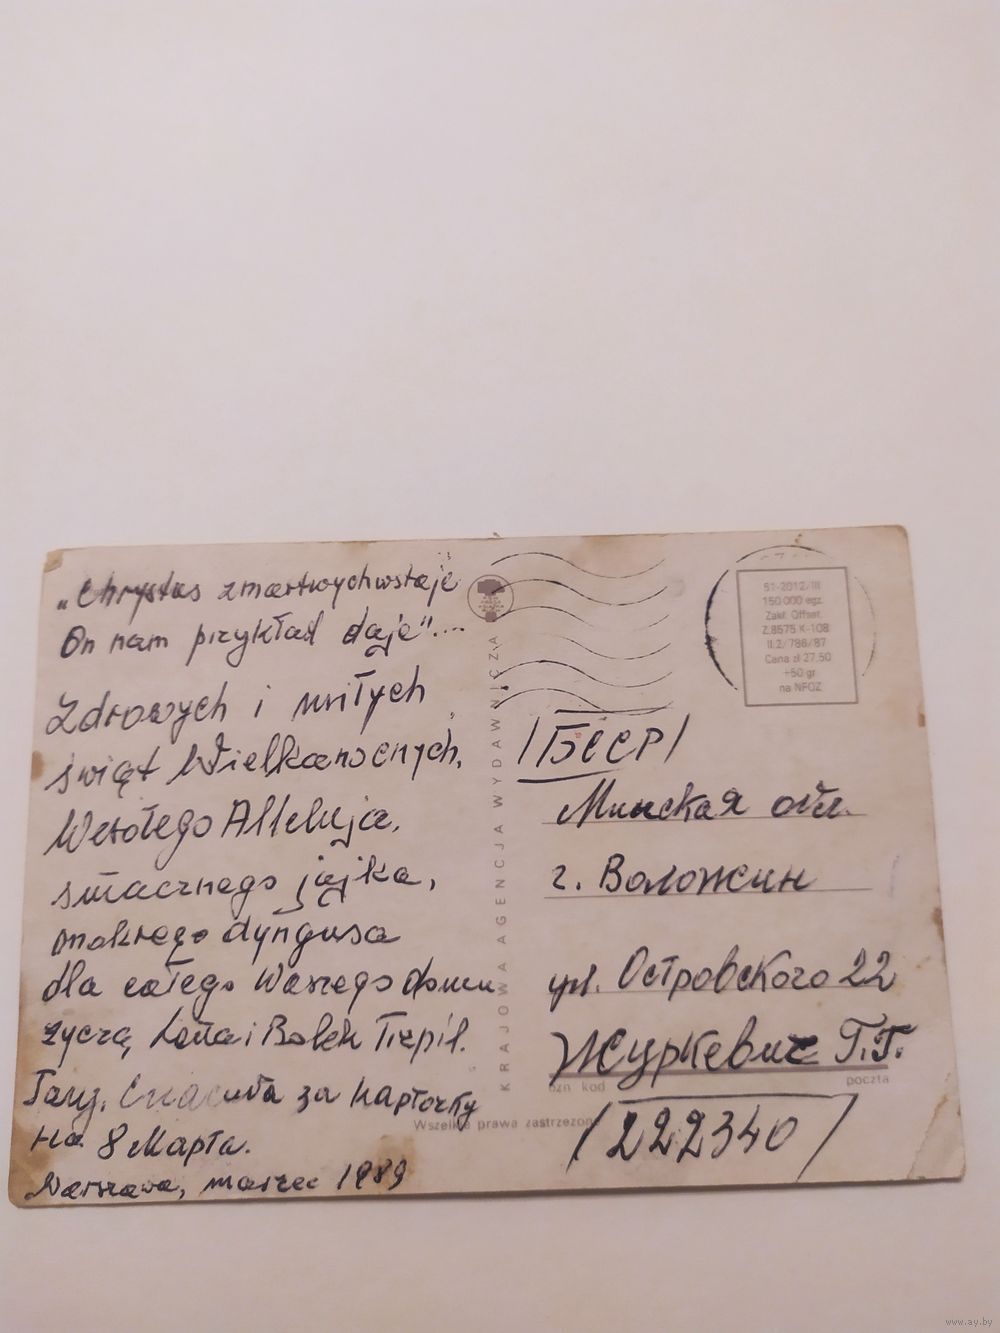 „Chrystus zmartwychwstaje
On nam przykład daje"....
Zdrowych i miłych
świąt Wielkanocnych,
Wesołego Alleluja,
smacznego jajka,
mokrego dyngusa
dla całego Waszego domu
życzą Lena i Bolek Tirpil.
Спасибо за карточку
на 8 Марта.
Warszawa, marzec 1989
KRAJOWA AGENCJA WYDAWNICZA
51-2012/III
150 000 egz.
Zakł. Offset.
Z.8575 K-108
II.2/786/87
Cena zł 27,50
+50 gr
na NFOZ
/БССР/
Минская обл.
г. Воложин
ул. Островского 22
Журкевич Г.Г.
ozn kod
poczta
Wszelkie prawa zastrzeżone
/222340/
www.ay.by